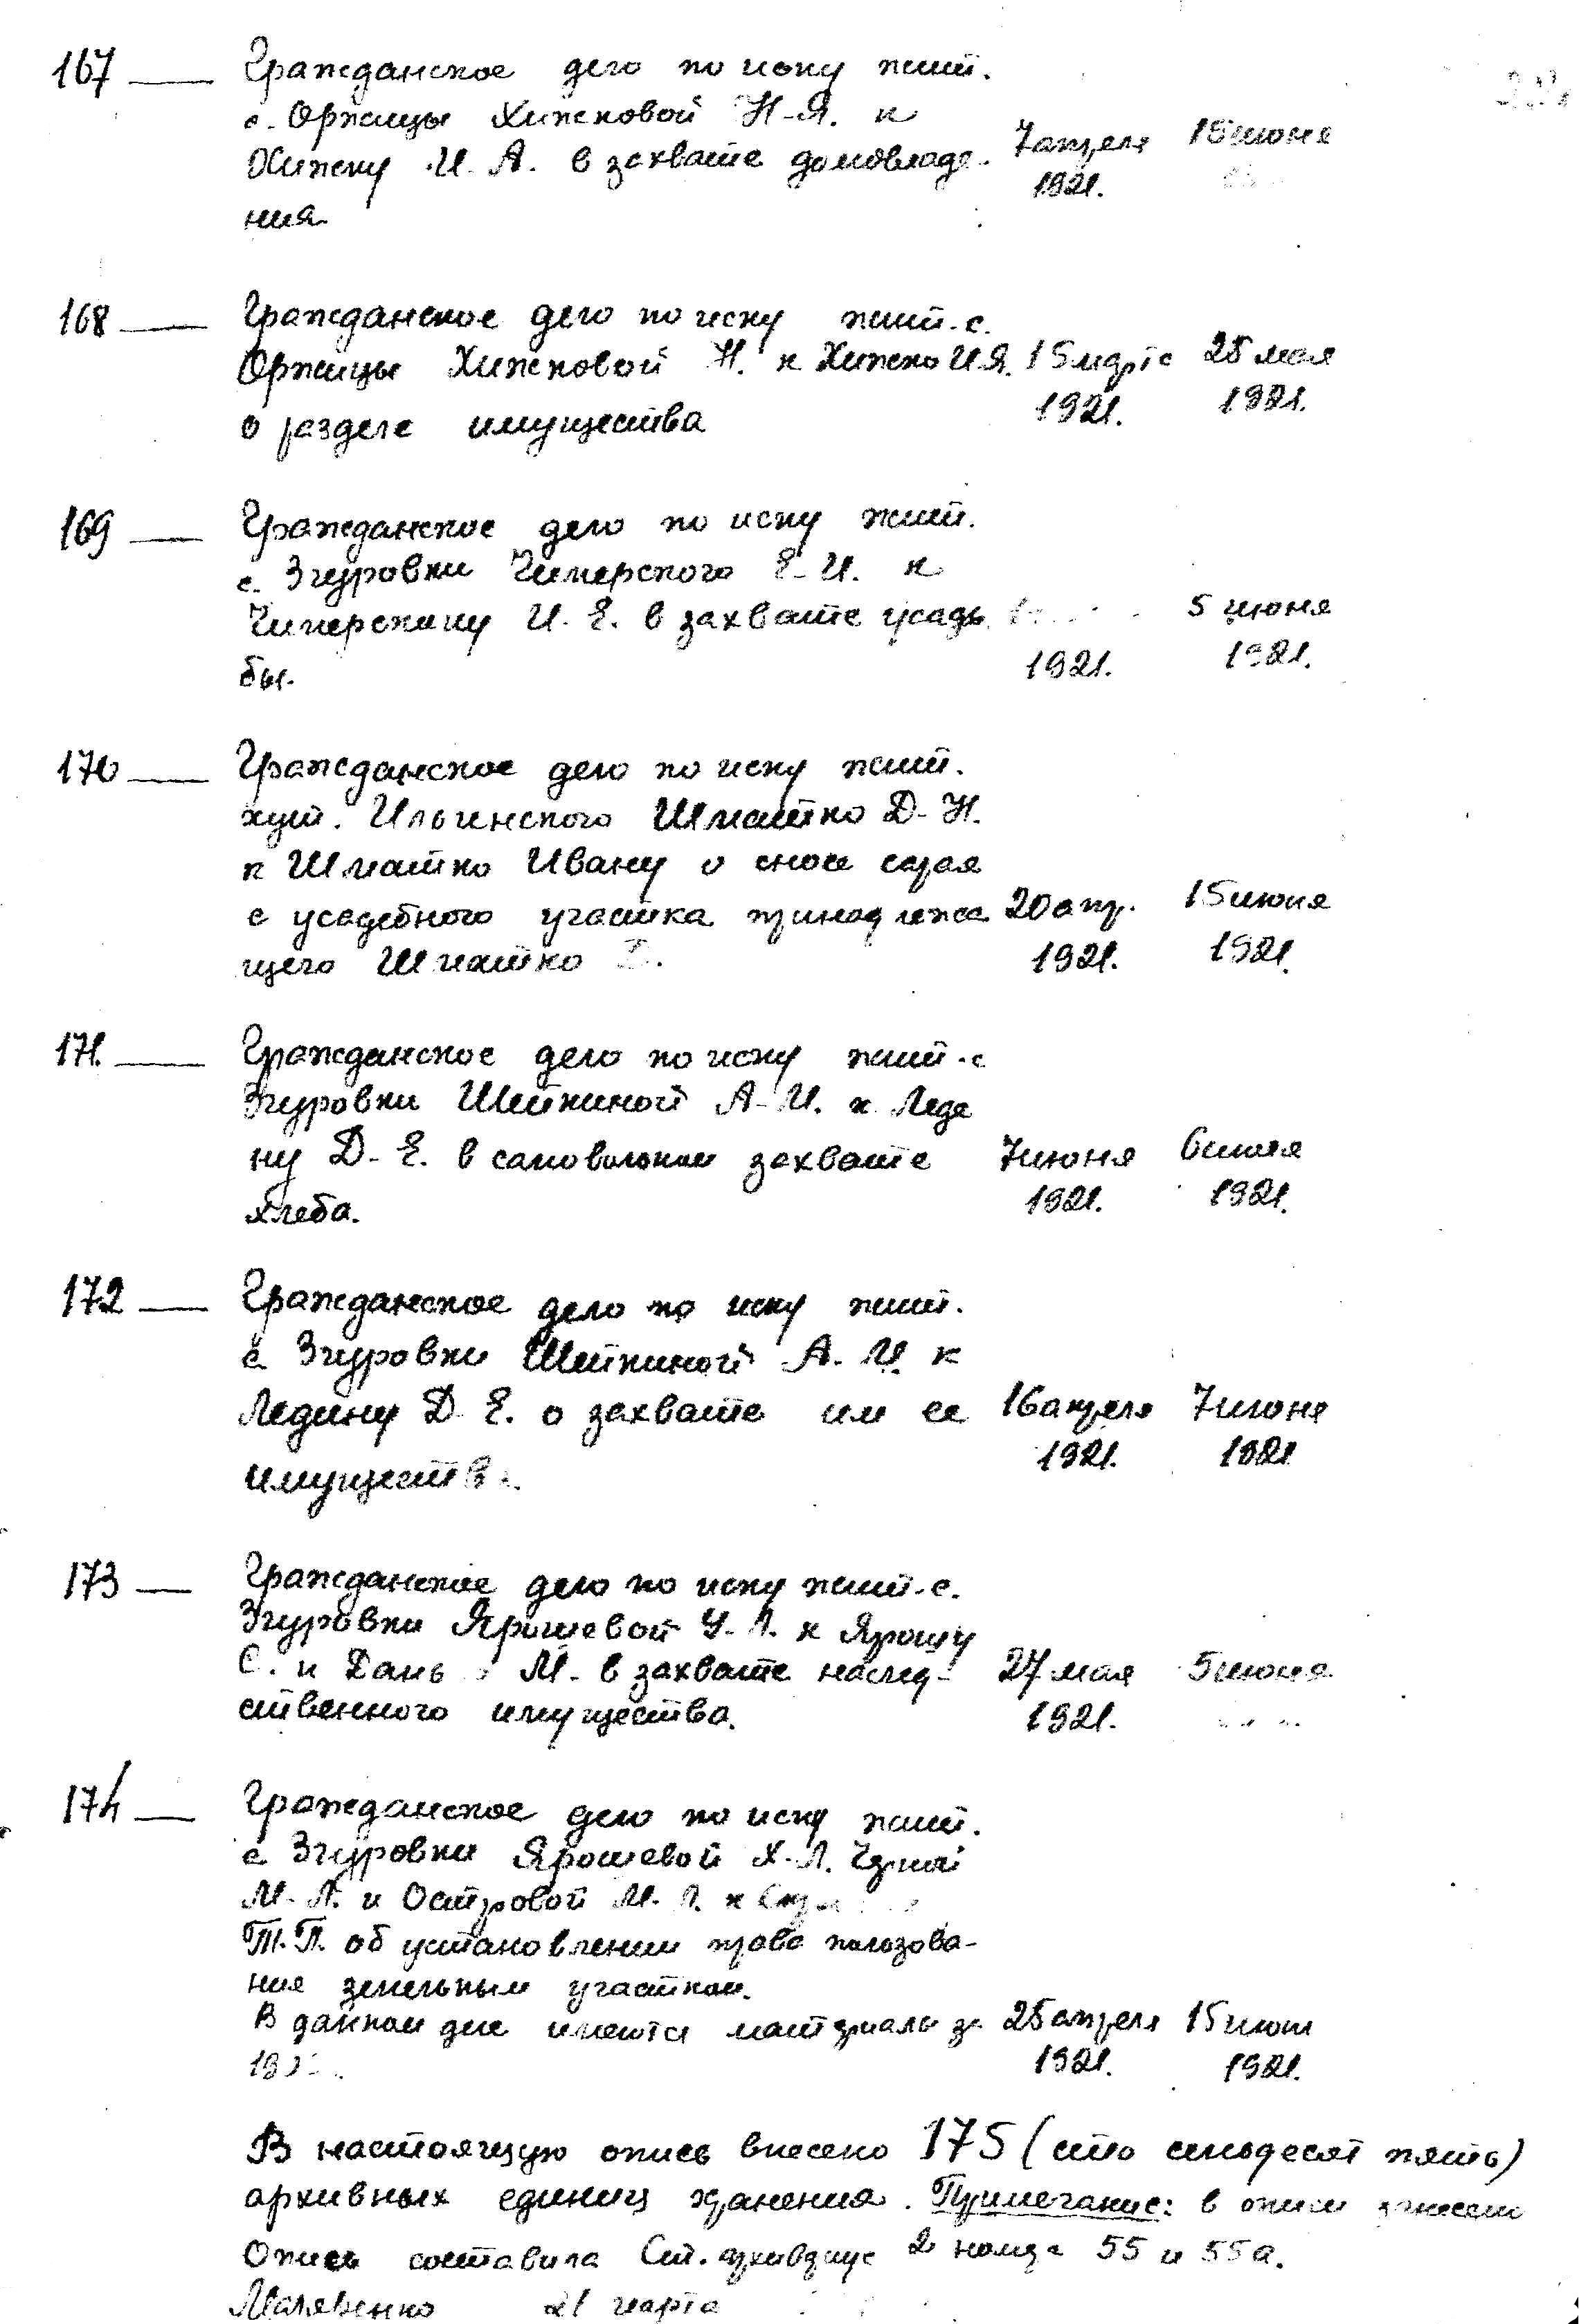 167 — Гражданское дело по иску жит.
с. Оржицы Хижковой Н.Я. к
Хижку И. А. в захвате домовладе- 7 апреля 15 июня
ния 1921.
168 — Гражданское дело по иску жит. с.
Оржицы Хижковой Н. к Хижко И.Я. 15 марта 25 мая
о разделе имущества 1921. 1921.
169 — Гражданское дело по иску жит.
с. Згуровки Чимерского Е. И. к
Чимерскому И. Е. в захвате усадь 5 июня
бы. 1921. 1921.
170 — Гражданское дело по иску жит.
хут. Ильинского Шматко Д. Н.
к Шматко Ивану о сносе сарая
с усадебного участка принадлежа 20 апр. 15 июня
щего Шматко 1921. 1921.
171. — Гражданское дело по иску жит. с
Згуровки Шейкиной А. И. к Леде
ну Д. Е. в самовольном захвате 7 июня 6 июля
хлеба. 1921. 1921.
172 — Гражданское дело по иску жит.
с. Згуровки Шейкиной А. И. к
Ледину Д. Е. о захвате им ее 16 апреля 7 июня
имущества. 1921. 1921
173 — Гражданское дело по иску жит. с.
Згуровки Ярошевой У. Л. к Ярошу
С. и М. в захвате наслед- 27 мая 5 июня
ственного имущества. 1921.
174 — Гражданское дело по иску жит.
с Згуровки Ярошевой Х. Л.
М. Л. и Островой М. Л. к
Т.П. об установлении права пользова-
ния земельным участком.
В данном деле имеются материалы за 25 апреля 15 июня
1921. 1921.
В настоящую опись внесено 175 (сто семьдесят пять)
архивных единиц хранения. Примечание: в описи
Опись составила Ст. архивариус 2 номера 55 и 55а.
Малявенко 21 марта